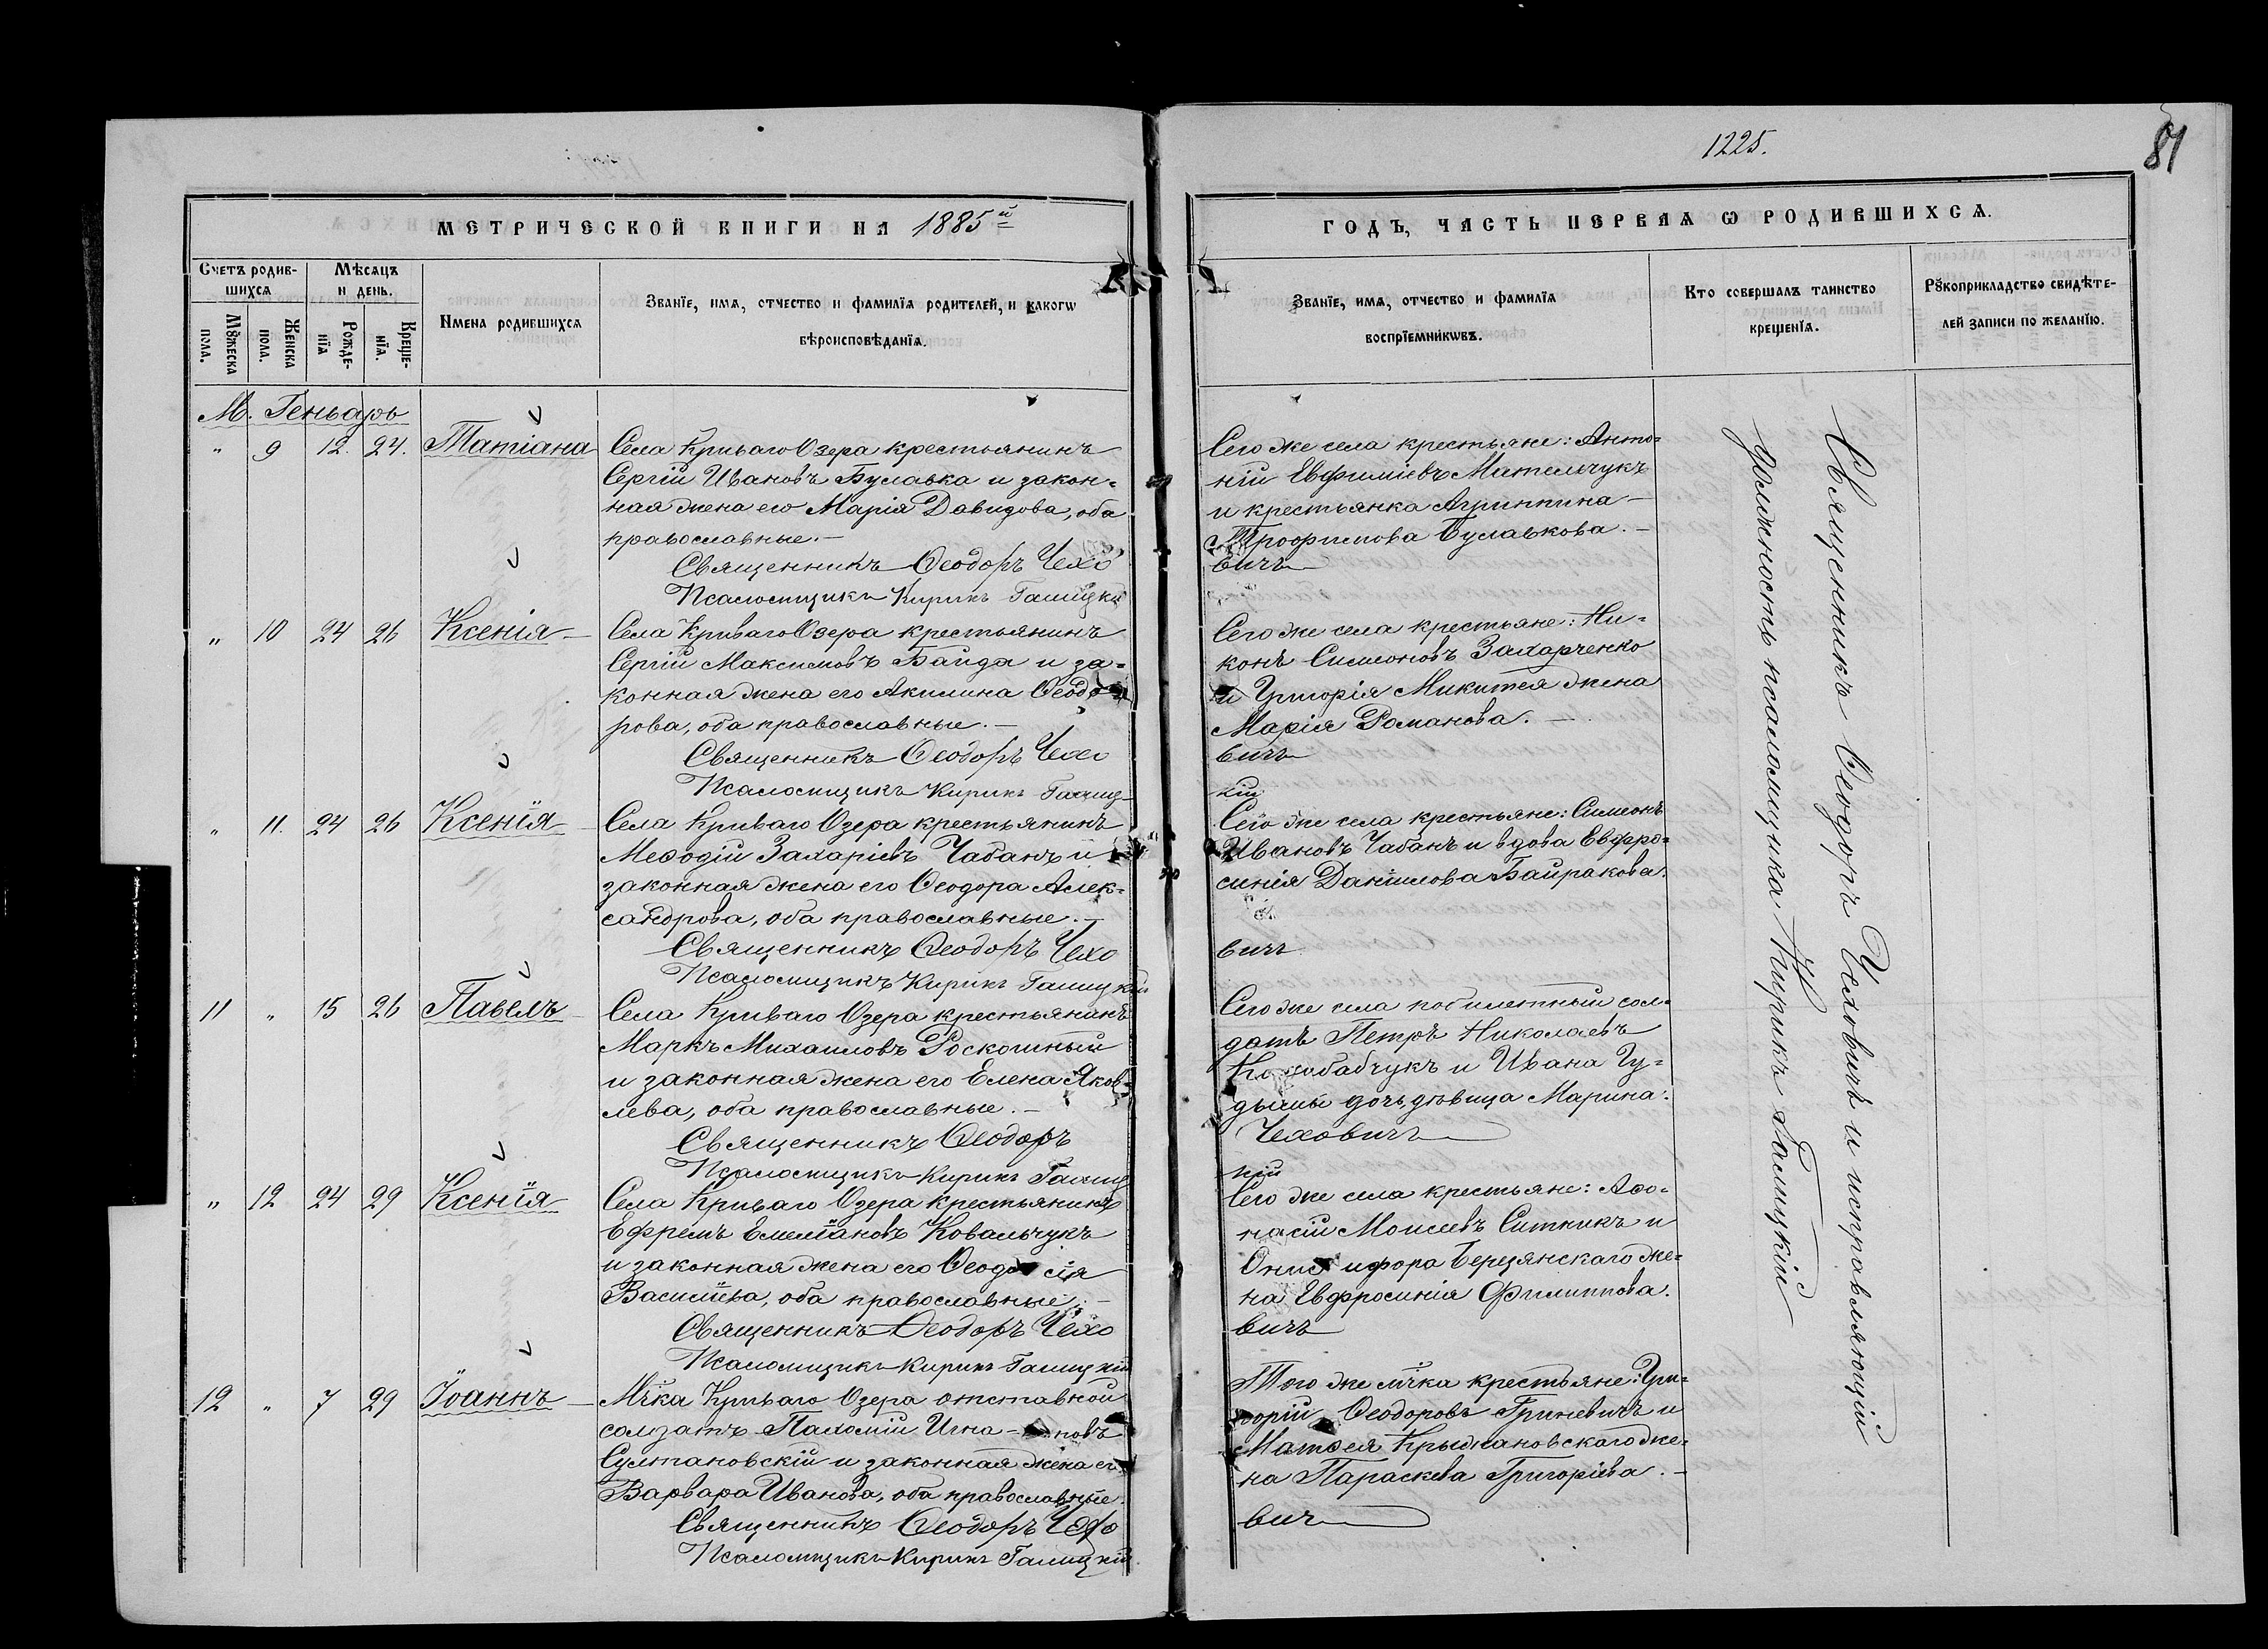 1225.
81
МЕТРИЧЕСКОЙ КНИГИ НА 1885й
ГОДЪ, ЧАСТЬ ПЕРВАЯ Ѡ РОДИВШИХСЯ.
Счетъ родив-
шихся
Мѣсяцъ
и день.
Мꙋжеска
пола.
Женска
пола.
Рожде-
нїя
Креще-
нїя.
Имена родившихся
Званїе, имя, отчество и фамилїя родителей, и какогѡ
вѣроисповѣданїя.
Званїе, имя, отчество и фамилїя
воспрїемникѡвъ.
Кто совершалъ таинство
крещенїя.
Рꙋкоприкладство свидѣте-
лей записи по желанїю.
М. Геньварь
" 9 12. 24. Татіана
Села Криваго Озера крестьянинъ
Сергій Ивановъ Булавка и закон-
ная жена его Марія Давидова, оба
православные.—
Священникъ Ѳеодоръ Чехо
Псаломщикъ Кирикъ Галицкій
Сего же села крестьяне: Анто-
ній Евфиміевъ Мательчукъ
и крестьянка Агрипина
Трофимова Булавкова.—
вичъ
" 10 24 26 Ксенія
Села Криваго Озера крестьянинъ
Сергій Максимовъ Байда и за-
конная жена его Акилина Ѳеодо-
рова, оба православные.—
Священникъ Ѳеодоръ Чехо
Псаломщикъ Кирикъ Галиц-
Сего же села крестьяне: Ни-
конъ Симеоновъ Захарченко
и Григорія Микитея жена
Марія Романова.—
вичъ
кій
" 11. 24 26 Ксенія
Села Криваго Озера крестьянинъ
Меѳодій Захаріевъ Чабанъ и
законная жена его Ѳеодора Алек-
сандрова, оба православные.—
Священникъ Ѳеодоръ Чехо
Псаломщикъ Кирикъ Галицкій
Сего же села крестьяне: Симеонъ
Ивановъ Чабанъ и вдова Евфро-
синія Даніилова Байракова.
вичъ
11 " 15 26 Павелъ
Села Криваго Озера крестьянинъ
Маркъ Михаиловъ Роскошный
и законная жена его Елена Яков-
лева, оба православные.—
Священникъ Ѳеодоръ
Псаломщикъ Кирикъ Галиц
Сего же села побилетный сол-
датъ Петръ Николаевъ
и Ивана Гу-
дымы дочь дѣвица Марина.
Чеховичъ
кій
" 12 24 29 Ксенія
Села Криваго Озера крестьянинъ
Ефремъ Емеліановъ Ковальчукъ
и законная жена его Ѳеодосія
Василіева, оба православные.—
Священникъ Ѳеодоръ Чехо
Псаломщикъ Кирикъ Галицкій
Сего же села крестьяне: Аѳо-
насій Моисеевъ Ситникъ и
Онисифора Березянскаго же-
на Евфросинія Филиппова.
вичъ
12 " 7 29 Іоаннъ
М-ка Криваго Озера отставной
солдатъ Пахомій Игна- новъ
Султановскій и законная жена его
Варвара Иванова, оба православные.
Священникъ Ѳеодоръ Чехо
Псаломщикъ Кирикъ Галицкій
Того же м-ка крестьяне: Гри-
горій Ѳеодоровъ Гриневичъ и
Матѳея Крыжановскаго же-
на Параскева Григоріева.—
вичъ
Священникъ Ѳеодоръ Чеховичъ и исправляющій
должность псаломщика Кирикъ Галицкій